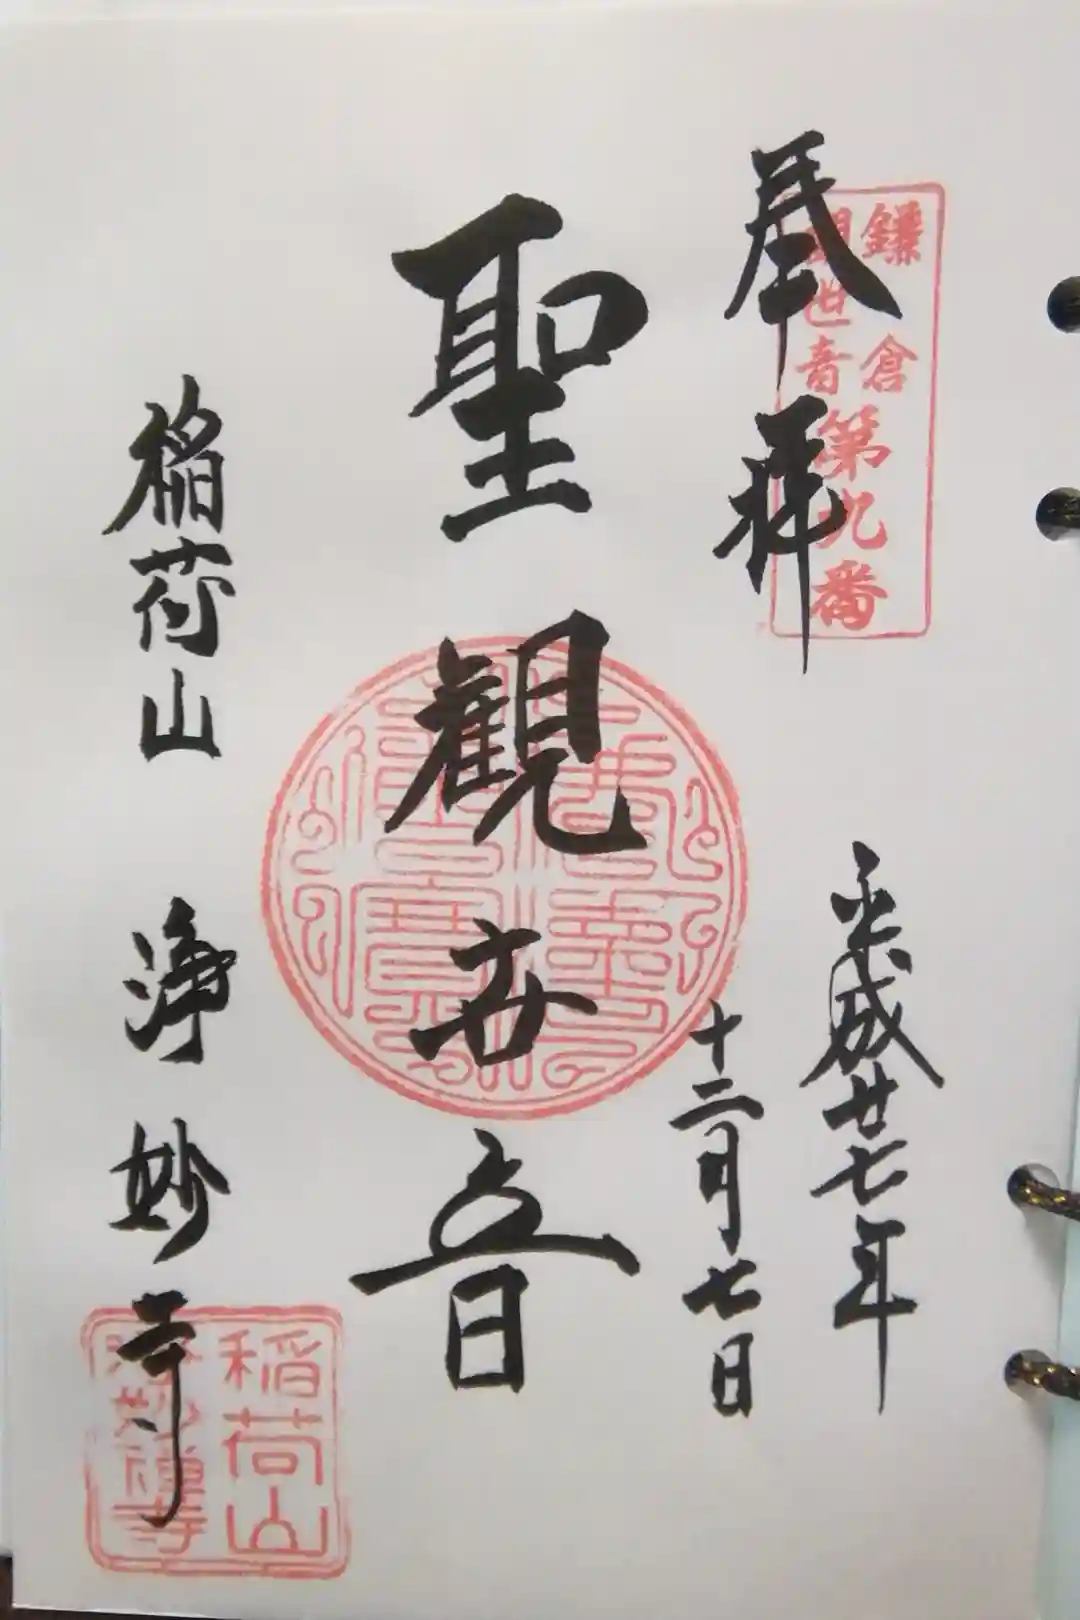 奉拝
鎌倉
觀世音
第九番
平成廿七年
十二月七日
聖觀世音
稲荷山　浄妙寺
稲荷山
浄妙禅寺